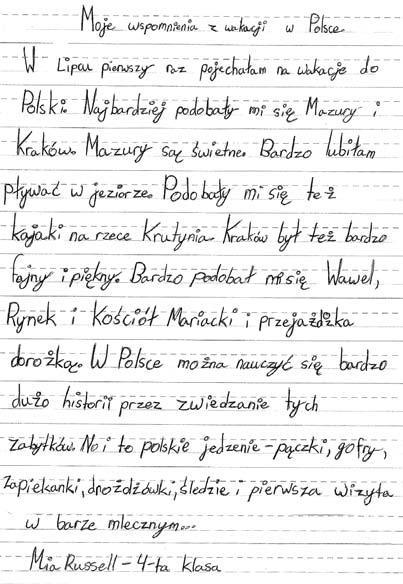 Moje wspomnienia z wakacji w Polsce
W Lipcu pierwszy raz pojechałam na wakacje do
Polski. Najbardziej podobały mi się Mazury i
Kraków. Mazury są świetne. Bardzo lubiłam
pływać w jeziorze. Podobały mi się też
kajaki na rzece Krutynia. Kraków był też bardzo
fajny i piękny. Bardzo podobał mi się Wawel,
Rynek i Kościół Mariacki i przejażdżka
dorożką. W Polsce można nauczyć się bardzo
dużo historii przez zwiedzanie tych
zabytków. No i to polskie jedzenie - pączki, gofry,
zapiekanki, drożdżówki, śledzie i pierwsza wizyta
w barze mlecznym...
Mia Russell - 4-ta klasa